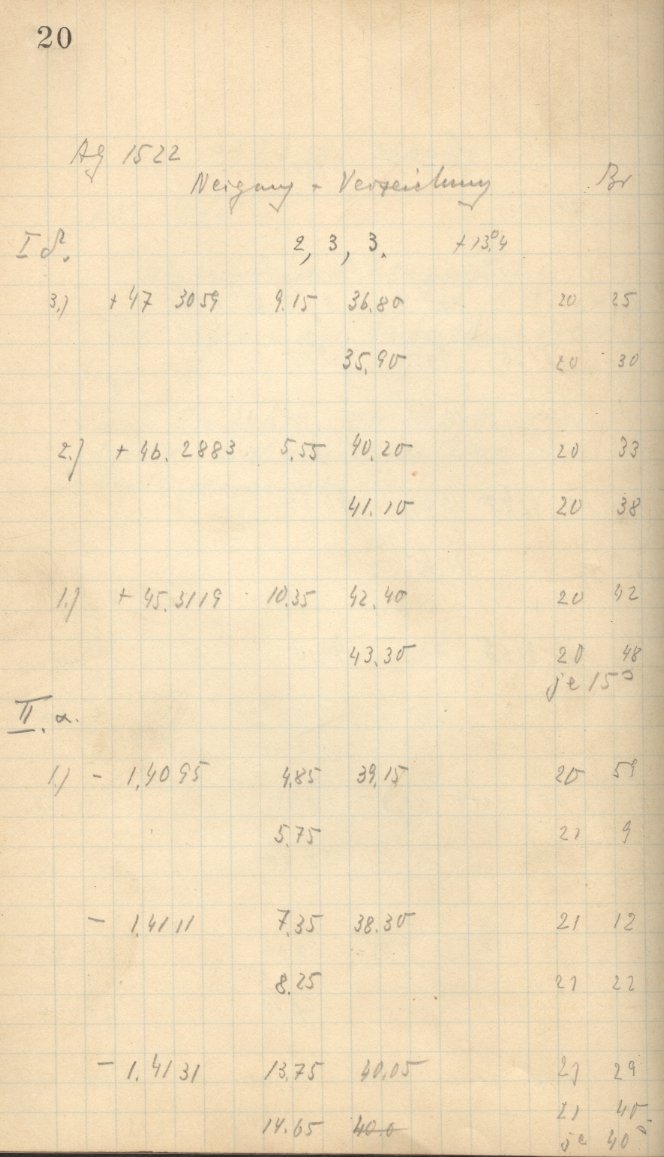 20
Ag 1522
Neigung - Verzeichnung Br
I δ. 2, 3, 3. +13°.4
3.) +47 3059 9.15 36.80 20 25
35,90 20 30
2.) + 46. 2883 5,55 40,20 20 33
41.10 20 38
1.) + 45.3119 10.35 42.40 20 42
43.30 20 48
je 15°
II. α.
1.) - 1,4095 4,85 39,15 20 59
5.75 21 9
- 1,4111 7,35 38.30 21 12
8.25 21 22
- 1.4131 13,75 40,05 21 29
14.65 40.0 21 40
je 40°